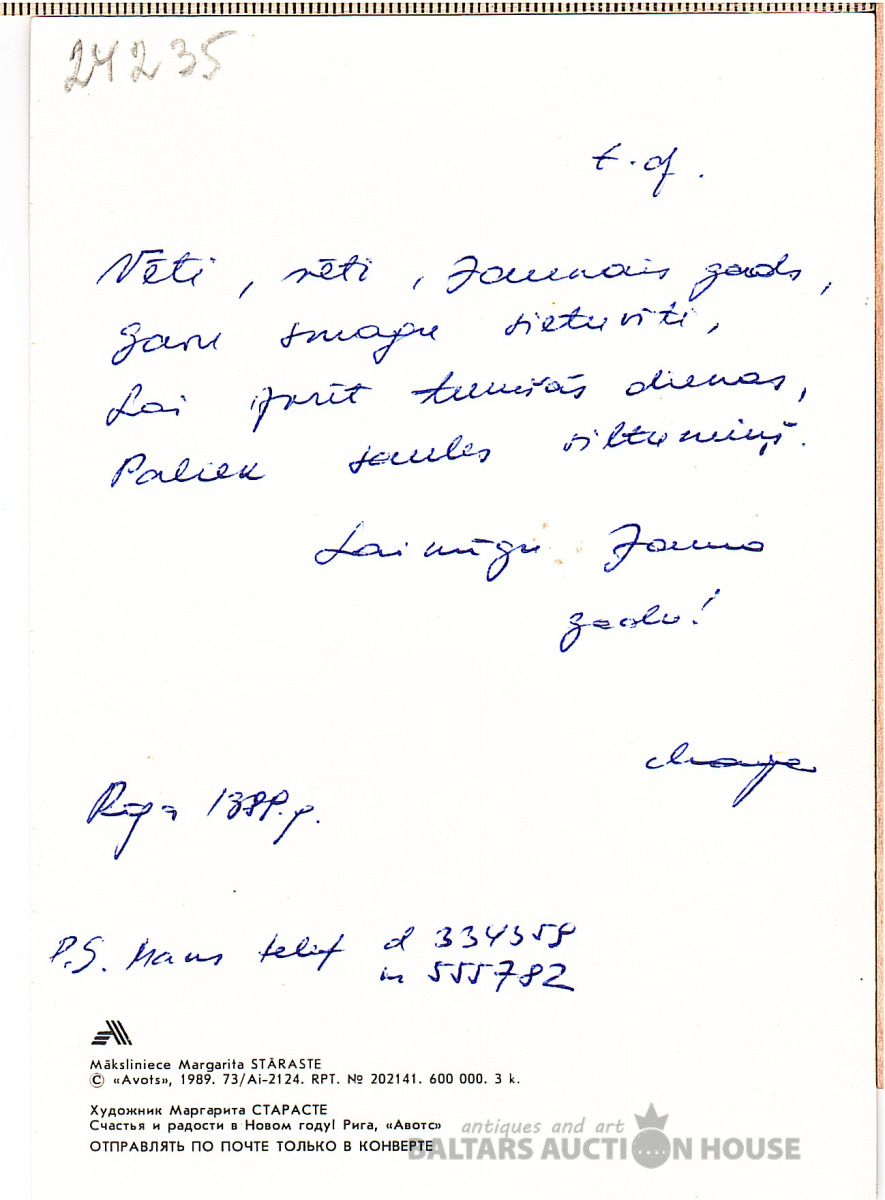 24235
Vēti, sēti, Jaunais gads,
Garu smagu sietu vīti,
Lai izvīt tumšās dienas,
Paliek saules siltumiņš.
Laimīgu Jauno
gadu!
Rīgā 1989.g.
P.S. Mans telef d 334359
m 555782
Māksliniece Margarita STĀRASTE
© «Avots», 1989. 73/Ai-2124. RPT. № 202141. 600 000. 3 k.
Художник Маргарита СТАРАСТЕ
Счастья и радости в Новом году! Рига, «Авотс»
ОТПРАВЛЯТЬ ПО ПОЧТЕ ТОЛЬКО В КОНВЕРТЕ
antiques and art
BALTARS AUCTION HOUSE